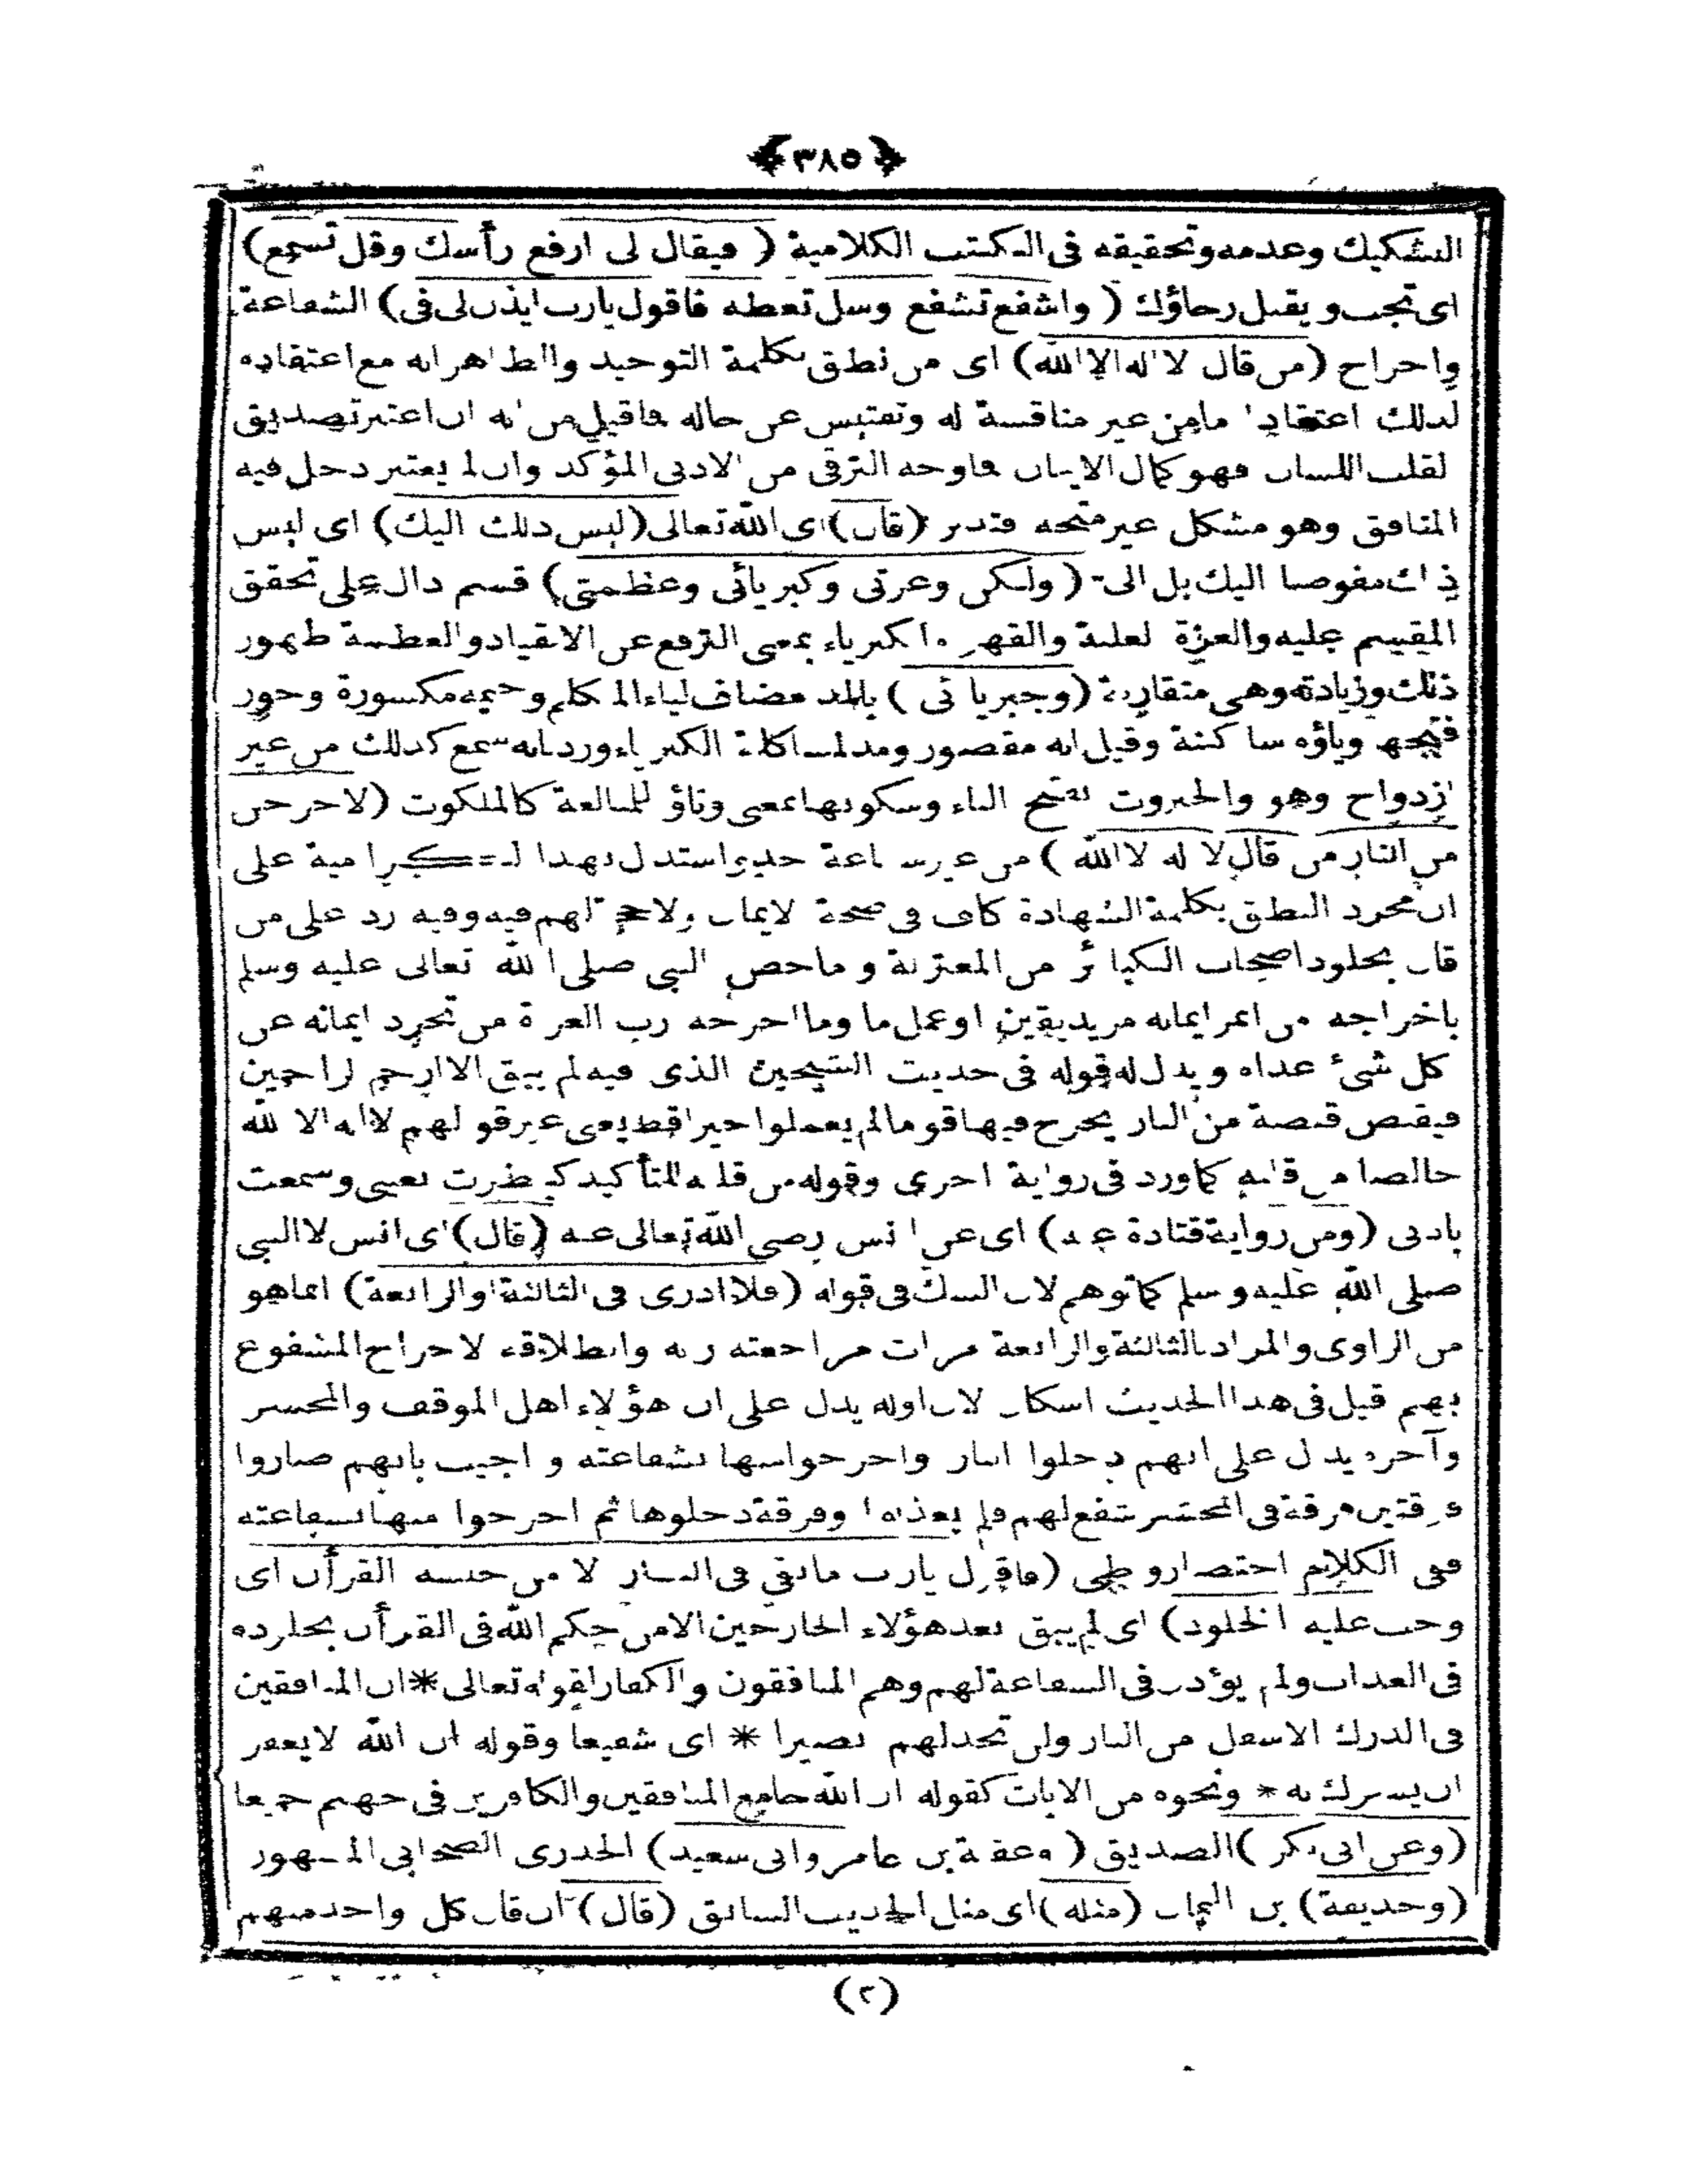 ﴿٣٨٥﴾
التشكيك وعدمه وتحقيقه فى الكتب الكلامية ( فيقال لى ارفع رأسك وقل تسمع)
اى تجب ويقبل رجاؤك ( واشفع تشفع وسل تعطه فاقول يارب ايذن لى فى) الشفاعة
واخراج (من قال لا اله الا الله) اى من نطق بكلمة التوحيد والظاهر انه مع اعتقاده
لذلك اعتقادا ما من غير مناقسة له وتفتيس عن حاله فاقيل من انه ان اعتبر تصديق
لقلب اللسان فهو كمال الايمان فاوجه الترقى من الادنى المؤكد وان لم يعتبر دخل فيه
المنافق وهو مشكل غير متجه فتدبر (قال) اى الله تعالى (ليس ذلك اليك) اى ليس
ذلك مفوضا اليك بل الى (ولكن وعزتى وكبريائى وعظمتى) قسم دال على تحقق
المقسم عليه والعزة لغلبة والقهر والكبرياء بمعنى الترفع عن الانقياد والعظمة ظهور
ذلك وزيادته وهى متقاربة (وجبريائى ) بالمد مضاف لياء المتكلم وجيمه مكسورة وجوز
فتحها وياؤه ساكنة وقيل انه مقصور ومد لمشاكلة الكبرياء ورد بانه سمع كذلك من غير
ازدواج وهو والجبروت بفتح الباء وسكونها بمعنى وتاؤ للمبالغة كالملكوت (لاخرجن
من النار من قال لا اله الا الله ) من غير شفاعة احد واستدل بهذا الكرامية على
ان مجرد النطق بكلمة الشهادة كاف فى صحة لايمان ولاحجة لهم فيه وفيه رد على من
قال بخلود اصحاب الكبائر من المعتزلة و ماخص النبى صلى الله تعالى عليه وسلم
باخراجه من اثمر ايمانه مزيد يقين او عمل ما وما اخرجه رب العزة من تجرد ايمانه عن
كل شئ عداه ويدل له قوله فى حديث الشيخين الذى فيه لم يبق الا ارحم لراحمين
فيقبض قبضة من النار يخرج فيها قوما لم يعملوا خيرا قط يعنى غير قولهم لا اله الا لله
خالصا من قلبه كماورد فى رواية اخرى وقوله من قلبه للتأكيد كنظرت بعينى وسمعت
باذنى (ومن رواية قتادة عنه) اى عن انس رضى الله تعالى عنه (قال) اى انس لاالنبى
صلى الله عليه وسلم كماتوهم لان الشك فى قوله (فلاادرى فى الثالثة او الرابعة) انماهو
من الراوى والمراد بالثالثة والرابعة مرات مراجعته ربه وانطلاقه لاخراج المشفوع
بهم قيل فى هذا الحديث اشكال لان اوله يدل على ان هؤلاء اهل الموقف والمحشر
وآخره يدل على انهم دخلوا النار واخرجوامنها بشفاعته و اجيب بانهم صاروا
فرقتين فرقة فى المحشر تشفع لهم فلم يعذبوا وفرقة دخلوها ثم اخرجوا منها بشفاعته
ففى الكلام اختصار وطى (فاقول يارب مابقى فى النار الا من حبسه القرأن اى
وجب عليه الخلود) اى لم يبق بعد هؤلاء الخارجين الامن حكم الله فى القرأن بخلوده
فى العذاب ولم يؤذن فى الشفاعة لهم وهم المنافقون والكفار لقوله تعالى * ان المنافقين
فى الدرك الاسفل من النار ولن تجد لهم نصيرا * اى شفيعا وقوله ان الله لايغفر
ان يشرك به * ونحوه من الايات كقوله ان الله جامع المنافقين والكافرين فى جهنم جميعا
(وعن ابى بكر )الصديق ( وعقبة بن عامر وابى سعيد) الخدرى الصحابى المشهور
(وحذيفة) بن اليمان (مثله) اى مثل الحديث السابق (قال) اى قال كل واحد منهم
(٢)